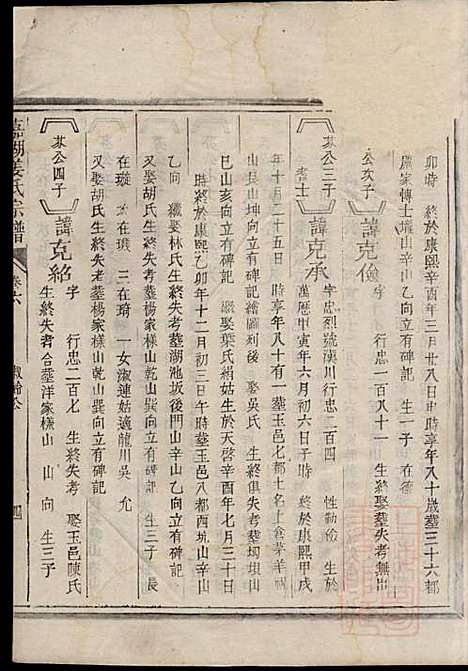 卯時 終於康熙辛酉年三月廿八日申時享年八十歲塟三十六都
嚴家博士壠山辛山乙向立有碑記 生一子 在德
公次子 諱克儉 字 行忠一百八十一 生終娶塟失考無出
恭公三子 諱克承 字忠烈號漢川行忠二百四 秉性 生於
耆士 萬歷甲寅年六月初六日子時 終於康熙甲戌
年十月二十五日 時享年八十有一塟玉邑七都土名上倉茅羊
山艮山坤向立有碑記繪圖列後 娶吳氏 生終俱失考塟 垻山
巳山亥向立有碑記 繼娶葉氏絹姑生於天啓辛酉年七月三十日
時終於康熙乙卯年十二月初三日午時塟玉邑八都西坑山辛山
乙向 續娶林氏生終失考塟湖池坂後門山辛山乙向立有碑記
又娶胡氏生終失考塟楊家樣山乾山巽向立有碑記 生三子 長
在璇 次在璣 三在瑃 一女淑連姑適龍川吳 允
又娶胡氏生終失考塟楊家樣山乾山巽向立有碑記
恭公四子 諱克紹 字 行忠二百七 生終失考 娶玉邑陳氏
生終失考合塟洋家樣山 山 向 生三子
嘉湖姜氏宗譜 卷六 四